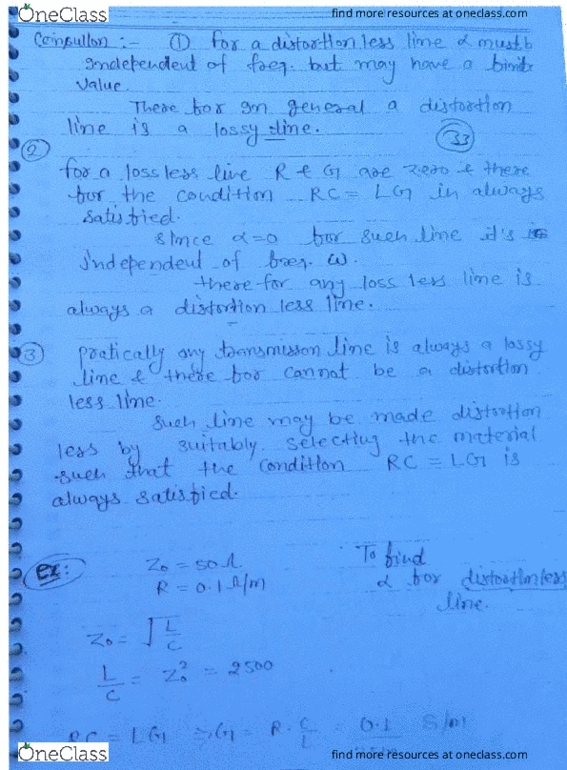 OneClass
find more resources at oneclass.com
① for a distortion less line α must b
independent of freq. but may have a
value.
There for in general a distortion
line is a lossy line.
33
②
for a loss less line R & G are zero & there
for the condition RC = LG is always
satisfied.
since α=0 for such line it's is
independent of freq. ω.
there for any loss less line is
always a distortion less line.
③ pratically any transmisson line is always a lossy
line & there for cannot be a distortion
less line.
such line may be made distortion
less by suitably selecting the material
such that the condition RC = LG is
always satisfied.
ex:
Z₀ = 50 Ω
R = 0.1 Ω/m
To find
α for distortionless
line.
Z₀ = √L/C
L/C = Z₀² = 2500
RC = LG ⇒ G = R · C/L = 0.1 S/m
OneClass
find more resources at oneclass.com